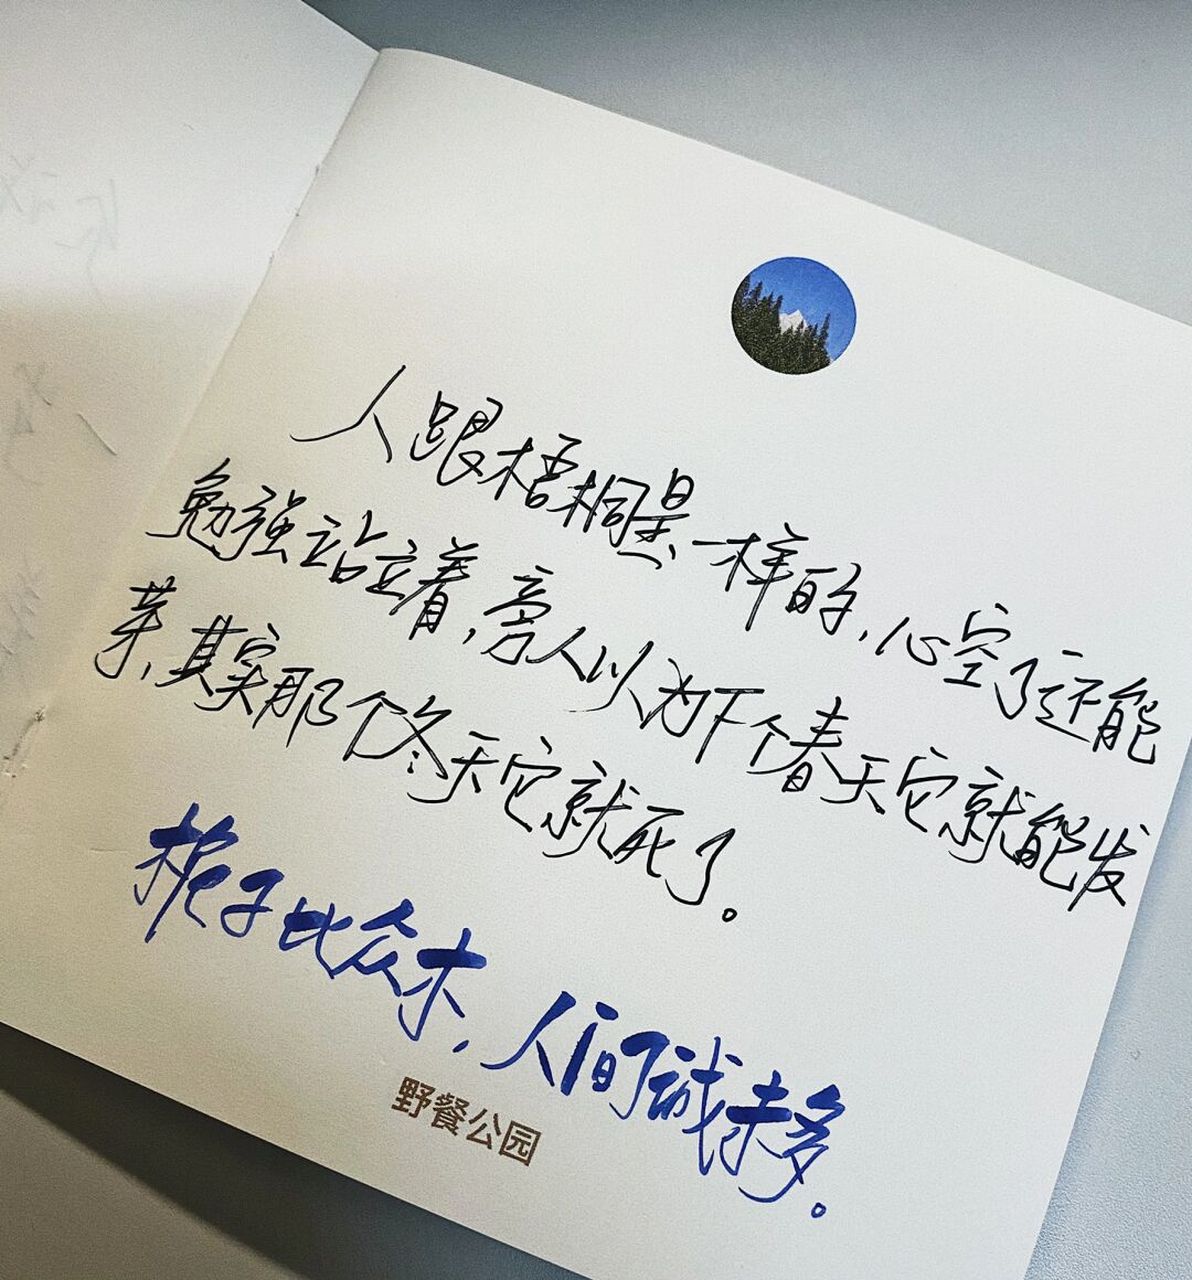 人跟梧桐是一样的,心空了还能
勉强站立着,旁人以为下个春天它就能发
芽,其实那个冬天它就死了。
栀子比众木,人间诚未多。
野餐公园